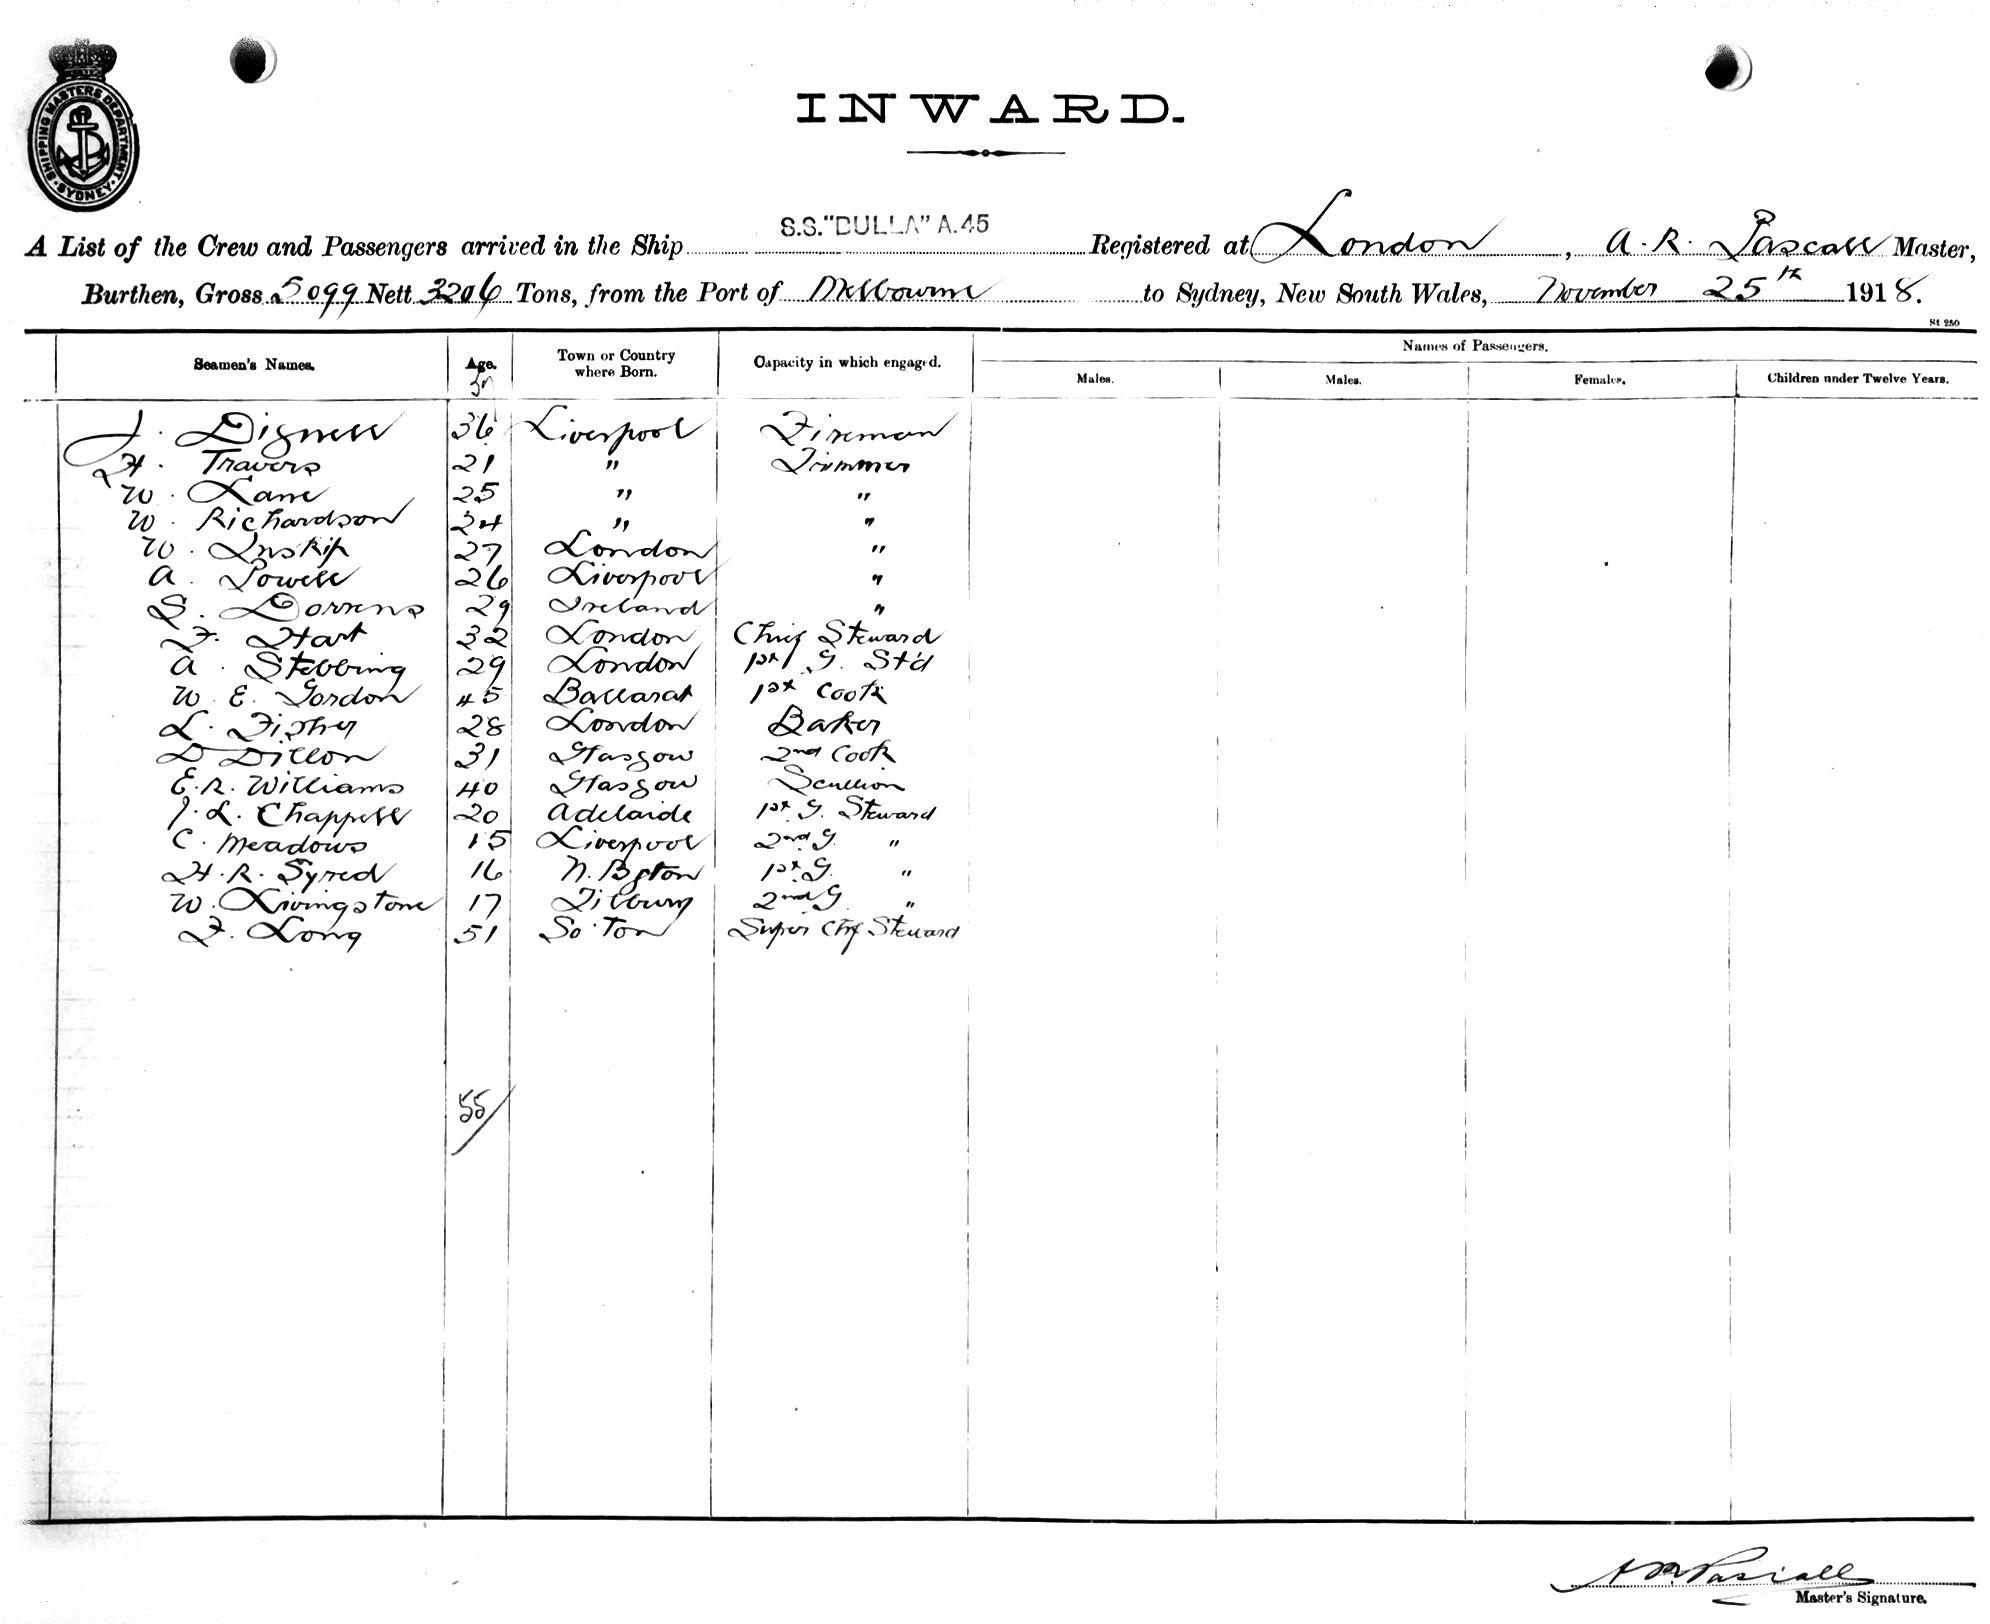 SHIPPING MASTERS DEPARTMENT
SYDNEY
INWARD.
S.S. "BULLA" A.45
A List of the Crew and Passengers arrived in the Ship Registered at London, A. R. Pascall Master,
Burthen, Gross 5099 Nett 3206 Tons, from the Port of Melbourne to Sydney, New South Wales, November 25th 1918.
St 250
Seamen's Names. Age. Town or Country where Born. Capacity in which engaged. Names of Passengers.
Males. Males. Females. Children under Twelve Years.
J. Dignell 36 Liverpool Fireman
H. Travers 21 " Trimmer
W. Lane 25 " "
W. Richardson 24 " "
W. Inskip 27 London "
A. Powell 26 Liverpool "
S. Dorrens 29 Ireland "
F. Hart 32 London Chief Steward
A. Stebbing 29 London 1st G. St'd
W. E. Gordon 45 Ballarat 1st Cook
L. Fisher 28 London Baker
D Dillon 31 Glasgow 2nd Cook
E. R. Williams 40 Glasgow Scullion
J. L. Chappell 20 Adelaide 1st G. Steward
C. Meadows 15 Liverpool 2nd G. "
H. R. Syred 16 N. Bgton 1st G. "
W. Livingstone 17 Tilbury 2nd G. "
F. Long 51 So'ton Super Chf Steward
55/
A R Pascall
Master's Signature.